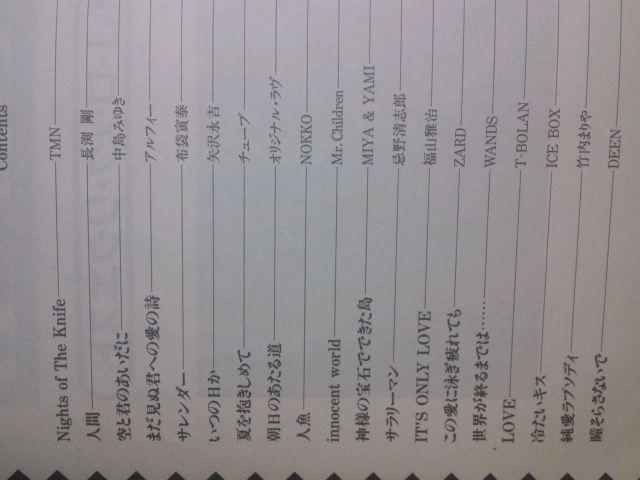 Contents
Nights of The Knife TMN
人間 長渕 剛
空と君のあいだに 中島みゆき
まだ見ぬ君への愛の詩 アルフィー
サレンダー 布袋寅泰
いつの日か 矢沢永吉
夏を抱きしめて チューブ
朝日のあたる道 オリジナル・ラヴ
人魚 NOKKO
innocent world Mr.Children
神様の宝石でできた島 MIYA & YAMI
サラリーマン 忌野清志郎
IT'S ONLY LOVE 福山雅治
この愛に泳ぎ疲れても ZARD
世界が終るまでは…… WANDS
LOVE T-BOLAN
冷たいキス ICE BOX
純愛ラプソディ 竹内まりや
瞳そらさないで DEEN